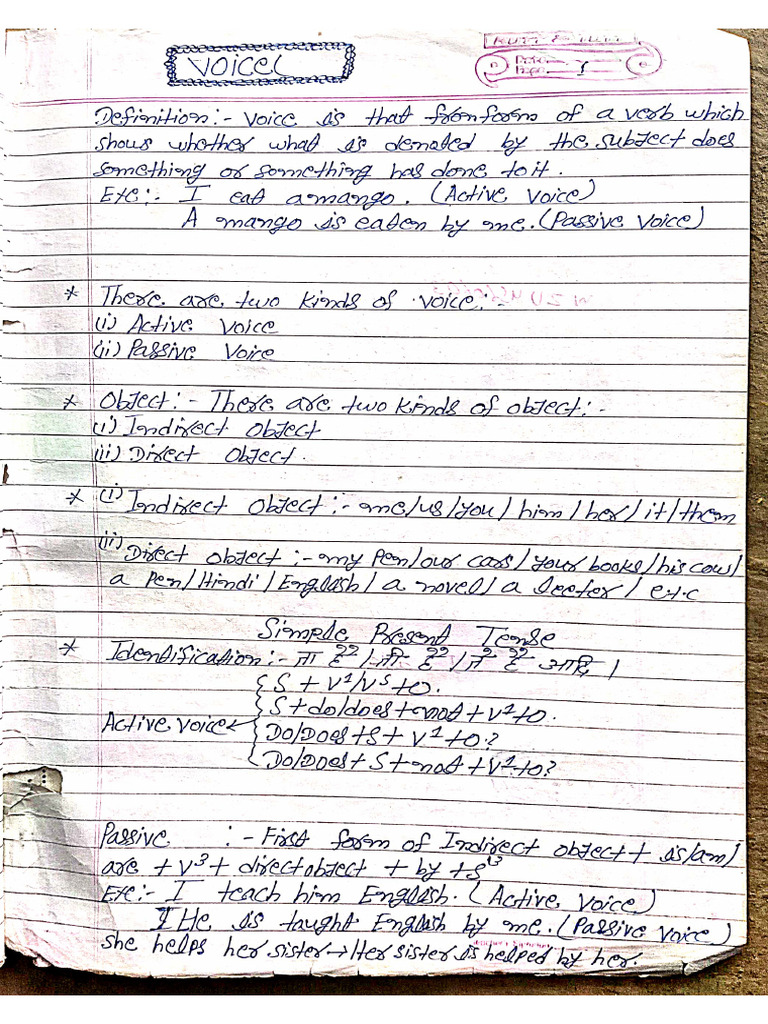 VOICE
Date
Page 1
Definition :- Voice is that from form of a verb which
shows whether what is denoted by the subject does
something or something has done to it.
Exe:- I eat a mango. (Active Voice)
A mango is eaten by me. (Passive Voice)
* There are two kinds of voice:-
(i) Active Voice
(ii) Passive Voice
* Object :- There are two kinds of object :-
(i) Indirect Object
(ii) Direct Object.
* (i) Indirect Object :- me/us/you/him/her/it/them
(ii) Direct object :- my pen/our cars/your books/his cow/
a pen/Hindi/English/a novel/a letter/etc
Simple Present Tense
* Identification :- ता है/ती है/ते है आदि।
S + V1/Vs + O.
S + do/does + not + V1 + O.
Active voice
Do/Does + S + V1 + O?
Do/Does + S + not + V1 + O?
Passive :- First form of Indirect object + is/am/
are + V3 + direct object + by + S
Exe:- I teach him English. (Active Voice)
He is taught English by me. (Passive Voice)
she helps her sister → Her sister is helped by her.